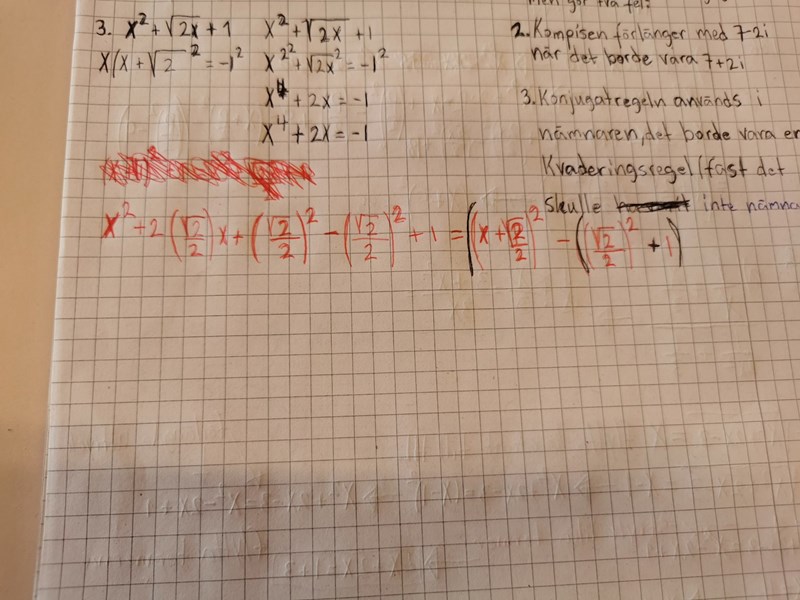 3. x² + √2x + 1
x(x + √2 ² = -1²
x² + √2x + 1
x²² + √2x² = -1²
x⁴ + 2x = -1
x⁴ + 2x = -1
x² + 2(√2/2)x + (√2/2)² - (√2/2)² + 1 = ((x + √2/2)² - ((√2/2)² + 1)
2. Kompisen förlänger med 7-2i
när det borde vara 7+2i
3. Konjugatregeln används i
nämnaren, det borde vara en
Kvaderingsregel (fast det
Skulle inte nämna